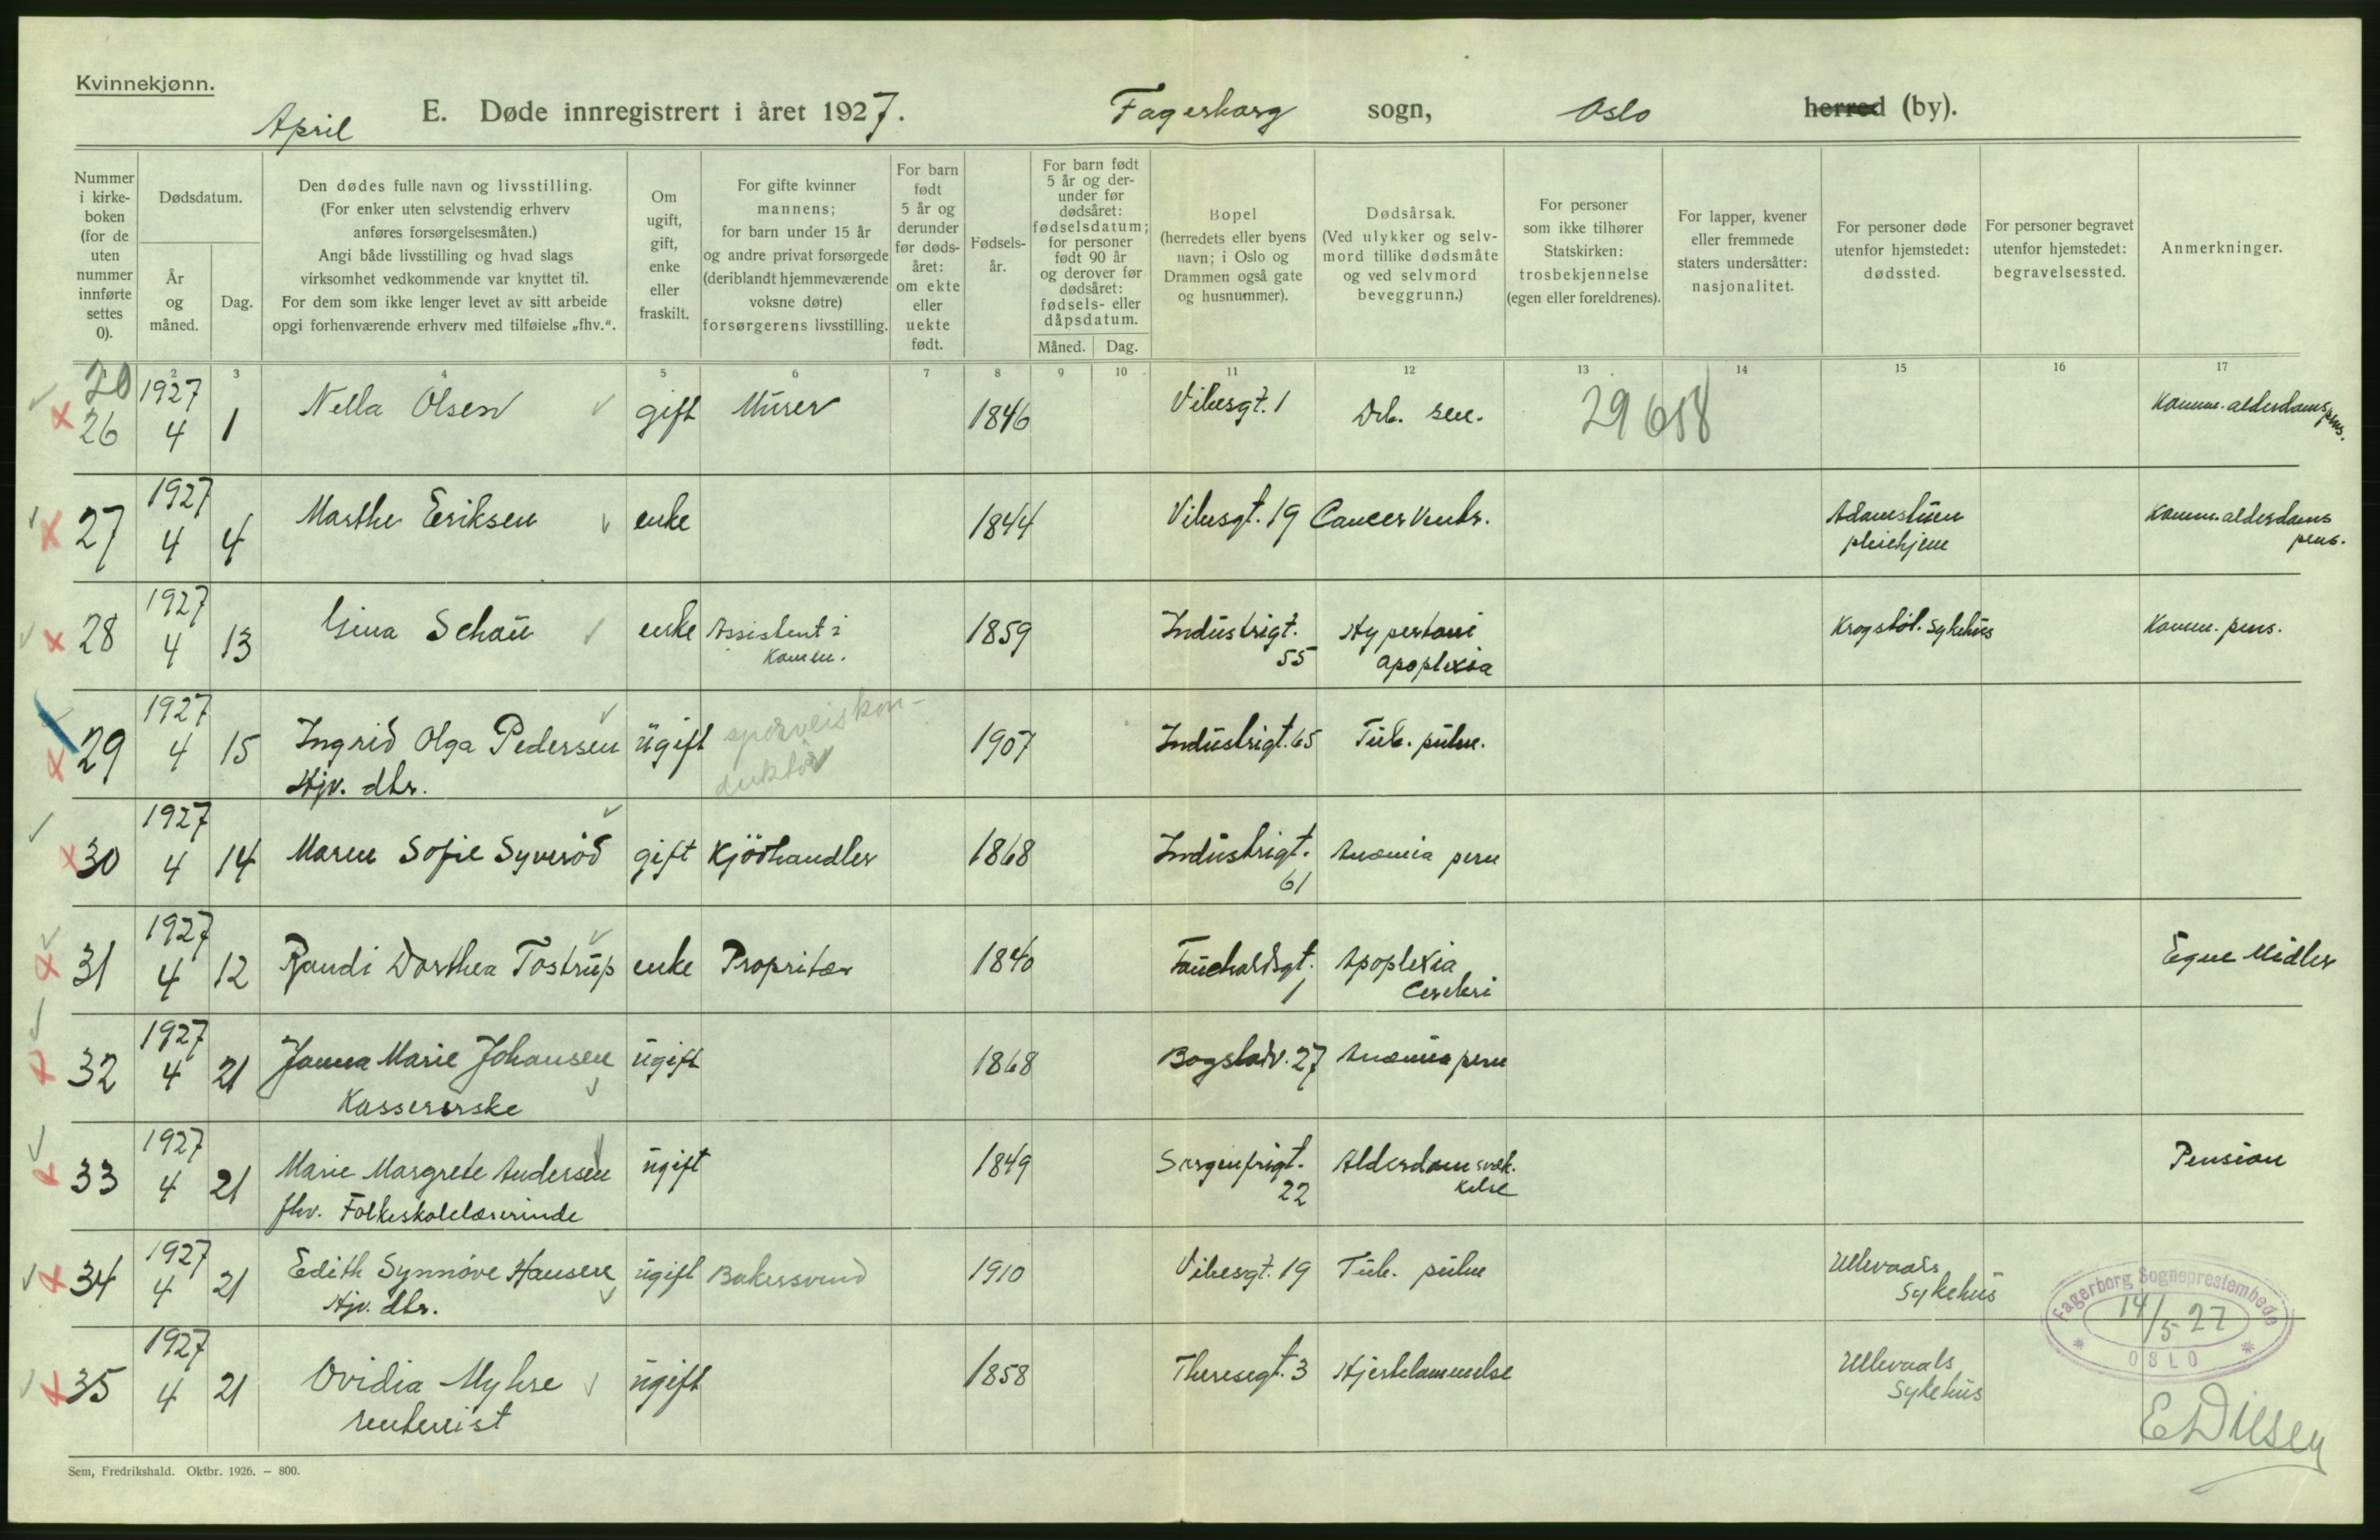 Kvinnekjønn.
April
E. Døde innregistrert i året 1927.
Fagerborg sogn, Oslo herred (by).
Nummer i kirke-boken (for de uten nummer innførte settes 0).
Dødsdatum.
År og måned.
Dag.
Den dødes fulle navn og livsstilling.
(For enker uten selvstendig erhverv
anføres forsørgelsesmåten.)
Angi både livsstilling og hvad slags
virksomhet vedkommende var knyttet til.
For dem som ikke lenger levet av sitt arbeide
opgi forhenværende erhverv med tilføielse „fhv.“.
Om ugift, gift, enke eller fraskilt.
For gifte kvinner
mannens;
for barn under 15 år
og andre privat forsørgede
(deriblandt hjemmeværende
voksne døtre)
forsørgerens livsstilling.
For barn født 5 år og derunder før døds-året: om ekte eller uekte født.
Fødsels-år.
For barn født
5 år og der-
under før
dødsåret:
fødselsdatum;
for personer
født 90 år
og derover før
dødsåret:
fødsels- eller
dåpsdatum.
Måned. Dag.
Bopel
(herredets eller byens
navn; i Oslo og
Drammen også gate
og husnummer).
Dødsårsak.
(Ved ulykker og selv-
mord tillike dødsmåte
og ved selvmord
beveggrunn.)
For personer
som ikke tilhører
Statskirken:
trosbekjennelse
(egen eller foreldrenes).
For lapper, kvener
eller fremmede
staters undersåtter:
nasjonalitet.
For personer døde
utenfor hjemstedet:
dødssted.
For personer begravet
utenfor hjemstedet:
begravelsessted.
Anmerkninger.
1 2 3 4 5 6 7 8 9 10 11 12 13 14 15 16 17
20
26 1927 4 1 Nella Olsen gift Murer 1846 Vibesgt. 1 Deb. sen. 29618 Komm. alderdomspens.
27 1927 4 4 Marthe Eriksen enke 1844 Vibesgt. 19 Cancer Ventr. Adamstuen pleiehjem Komm. alderdoms pens.
28 1927 4 13 Gina Schau enke Assistent i Komm. 1859 Industrigt. 55 Hypertoni apoplexia Krogstøt. Sykehus Komm. pens.
29 1927 4 15 Ingrid Olga Pedersen ugift sporveiskon-duktør 1907 Industrigt. 65 Tub. pulm.
Hjv. dtr.
30 1927 4 14 Maren Sofie Syverød gift Kjøthandler 1868 Industrigt. 61 Anæmia pern
31 1927 4 12 Randi Dorthea Tostrup enke Propritær 1840 Fauchaldsgt. 1 Apoplexia Cerebri Egne Midler
32 1927 4 21 Janna Marie Johansen ugift 1868 Bogstadv. 27 Anæmia pern
Kassererske
33 1927 4 21 Marie Margrete Andersen ugift 1849 Sorgenfrigt. 22 Alderdomsvæk.kelse Pension
fhv. Folkeskolelærerinde
34 1927 4 21 Edith Synnøve Hansen ugift Bakersvend 1910 Vibesgt. 19 Tub. pulm Ullevaals Sykehus
Hjv. dtr.
35 1927 4 21 Ovidia Myhre ugift 1858 Theresegt. 3 Hjertelammelse Ullevaals Sykehus
rentenist
Fagerborg Sogneprestembede
14/5 27
OSLO
Sem, Fredrikshald. Oktbr. 1926. – 800.